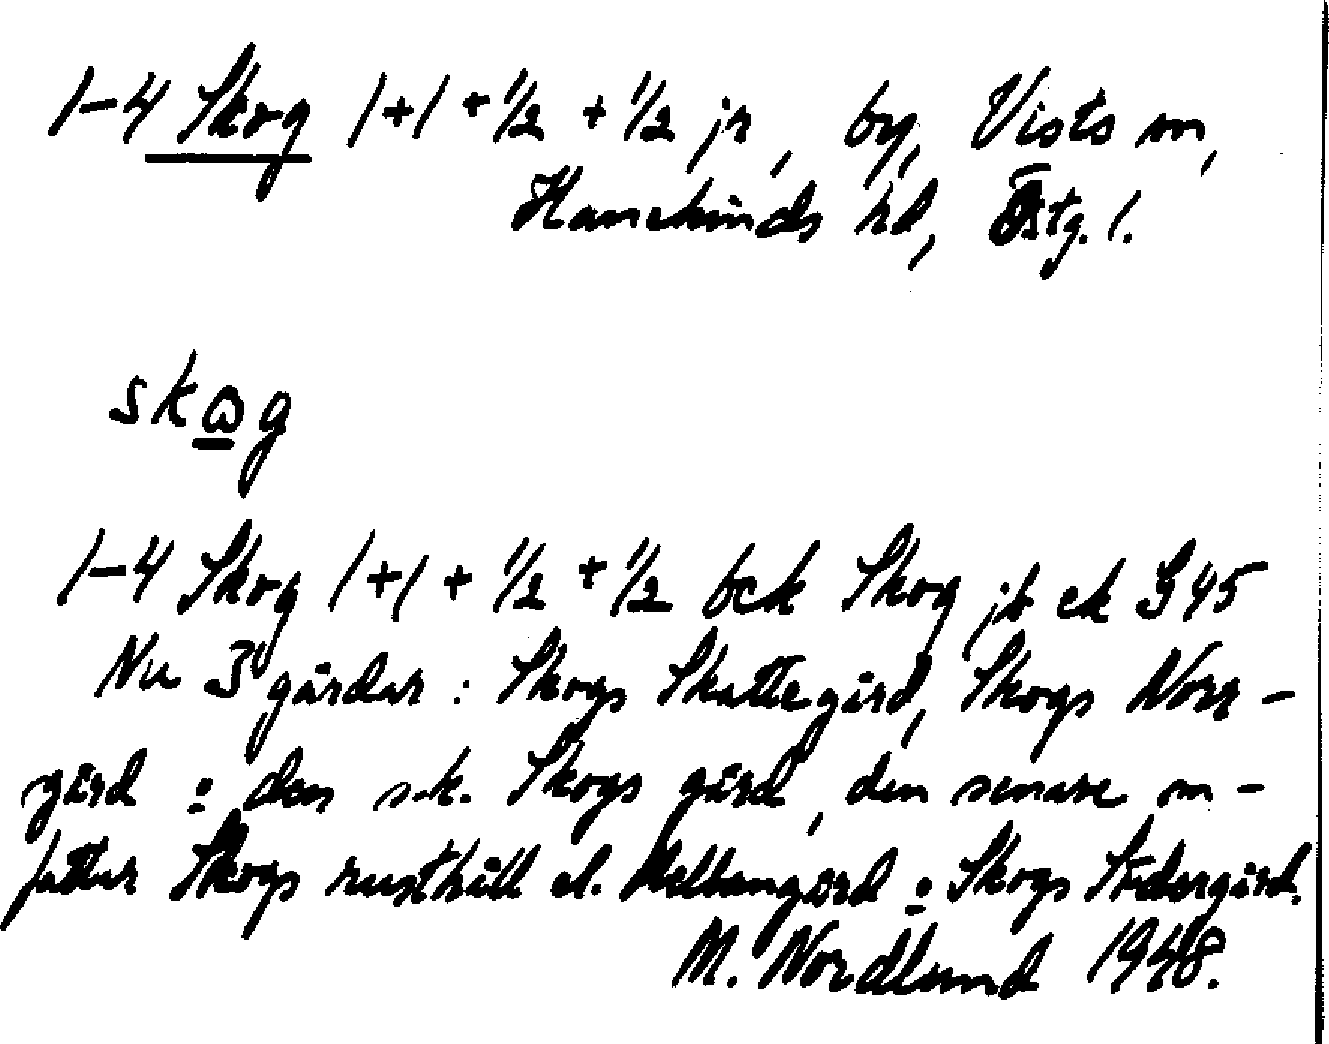 1-4 Skog 1+1 + 1/2 + 1/2 jr, by, Vists sn,
Hanekinds hd, Östg. l.
skωg
1-4 Skog 1+1 + 1/2 + 1/2 bek Skog jb ek G45
Nu 3 gårdar: Skogs Skattegård, Skogs Norr-
gård o den s.k. Skogs gård, den senare om-
fattar Skogs rusthåll el. Mellangård o Skogs Södergård.
M. Nordlund 1948.